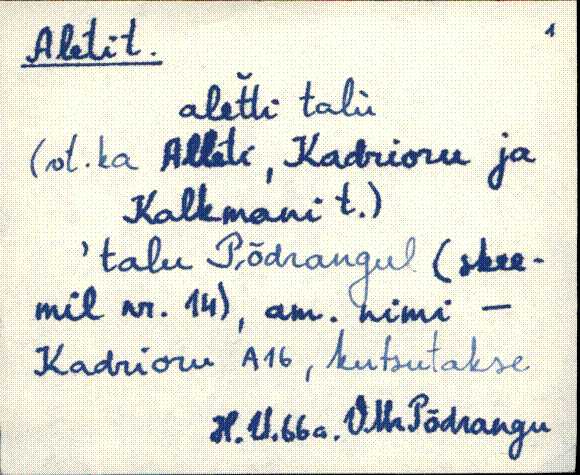 Aletit. 1
aletti talù
(vt. ka Alleti, Kadrioru ja
Kalkmani t.)
'talu Põdrangul (skee-
mil nr. 14), am. nimi —
Kadrioru A16, kutsutakse
H.U. 66a. VMr Põdrangu